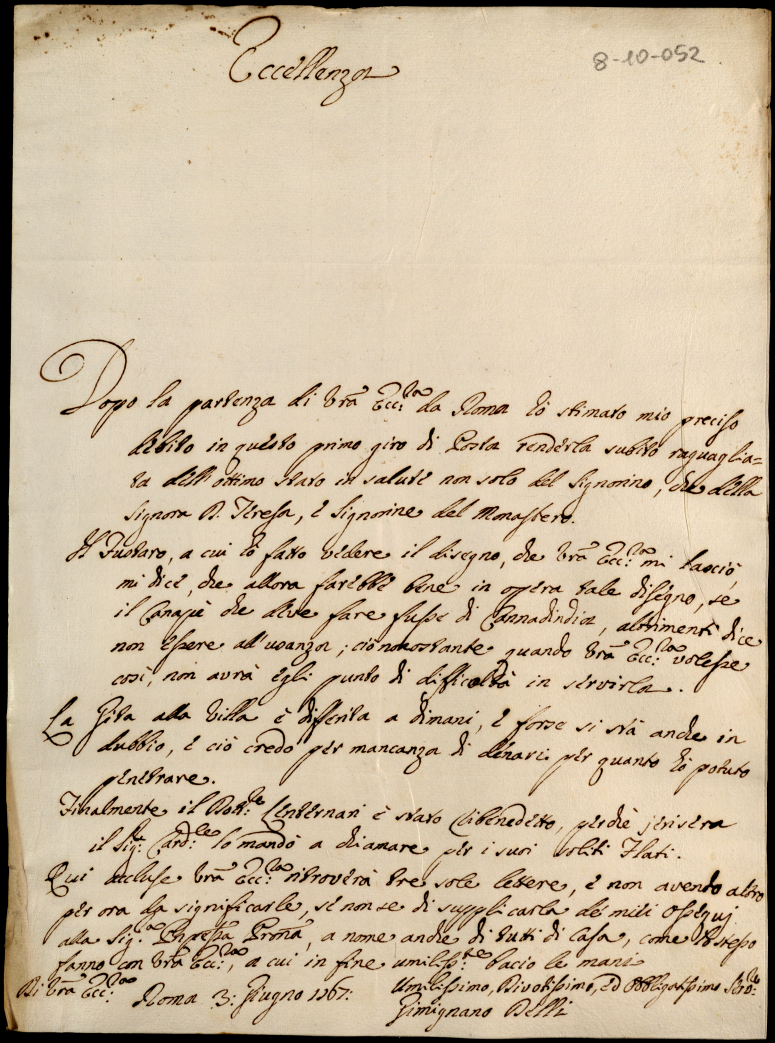 8-10-052
Eccellenza
Dopo la partenza di Vrã Ecc:za da Roma hò stimato mio preciso
debito in questo primo giro di Posta renderla subito raguaglia=
ta dell'ottimo stato in salute non solo del Signorino, che della
Signora D. Teresa, e Signorine del Monastero.
Il Fustaro, a cui hò fatto vedere il disegno, che Vrã Ecc:za mi lasciò,
mi dice, che allora farebbe bene in opera tale disegno, se
il Canapè che deve fare fusse di Cannadindia, altrimenti dice
non essere all'usanza; ciò nonostante quando Vrã Ecc:za volesse
così, non avrà egli punto di difficoltà in servirla.
La Gita alla Villa è differita a dimani, e forse si stà anche in
dubbio, e ciò credo per mancanza di denari per quanto hò potuto
penetrare.
Finalmente il Dott:re Centernari è stato Ribenedetto, perchè jerisera
il Sig:re Card:le lo mandò a chiamare per i suoi soliti Flati.
Qui accluse Vrã Ecc:za ritroverà tre sole lettere, e non avendo altro
per ora da significarle, se non se di supplicarla de miei ossequj
alla Sig:ra Pnpessa Proña, a nome anche di tutti di Casa, come lo stesso
fanno con Vrã Ecc:za, a cui in fine umiliss:te bacio le mani
Di Vrã Ecc:za Roma 3: Giugno 1767: Umilissimo, Divotissimo, ed Obbligatissimo Serv:re
Gimignano Belli